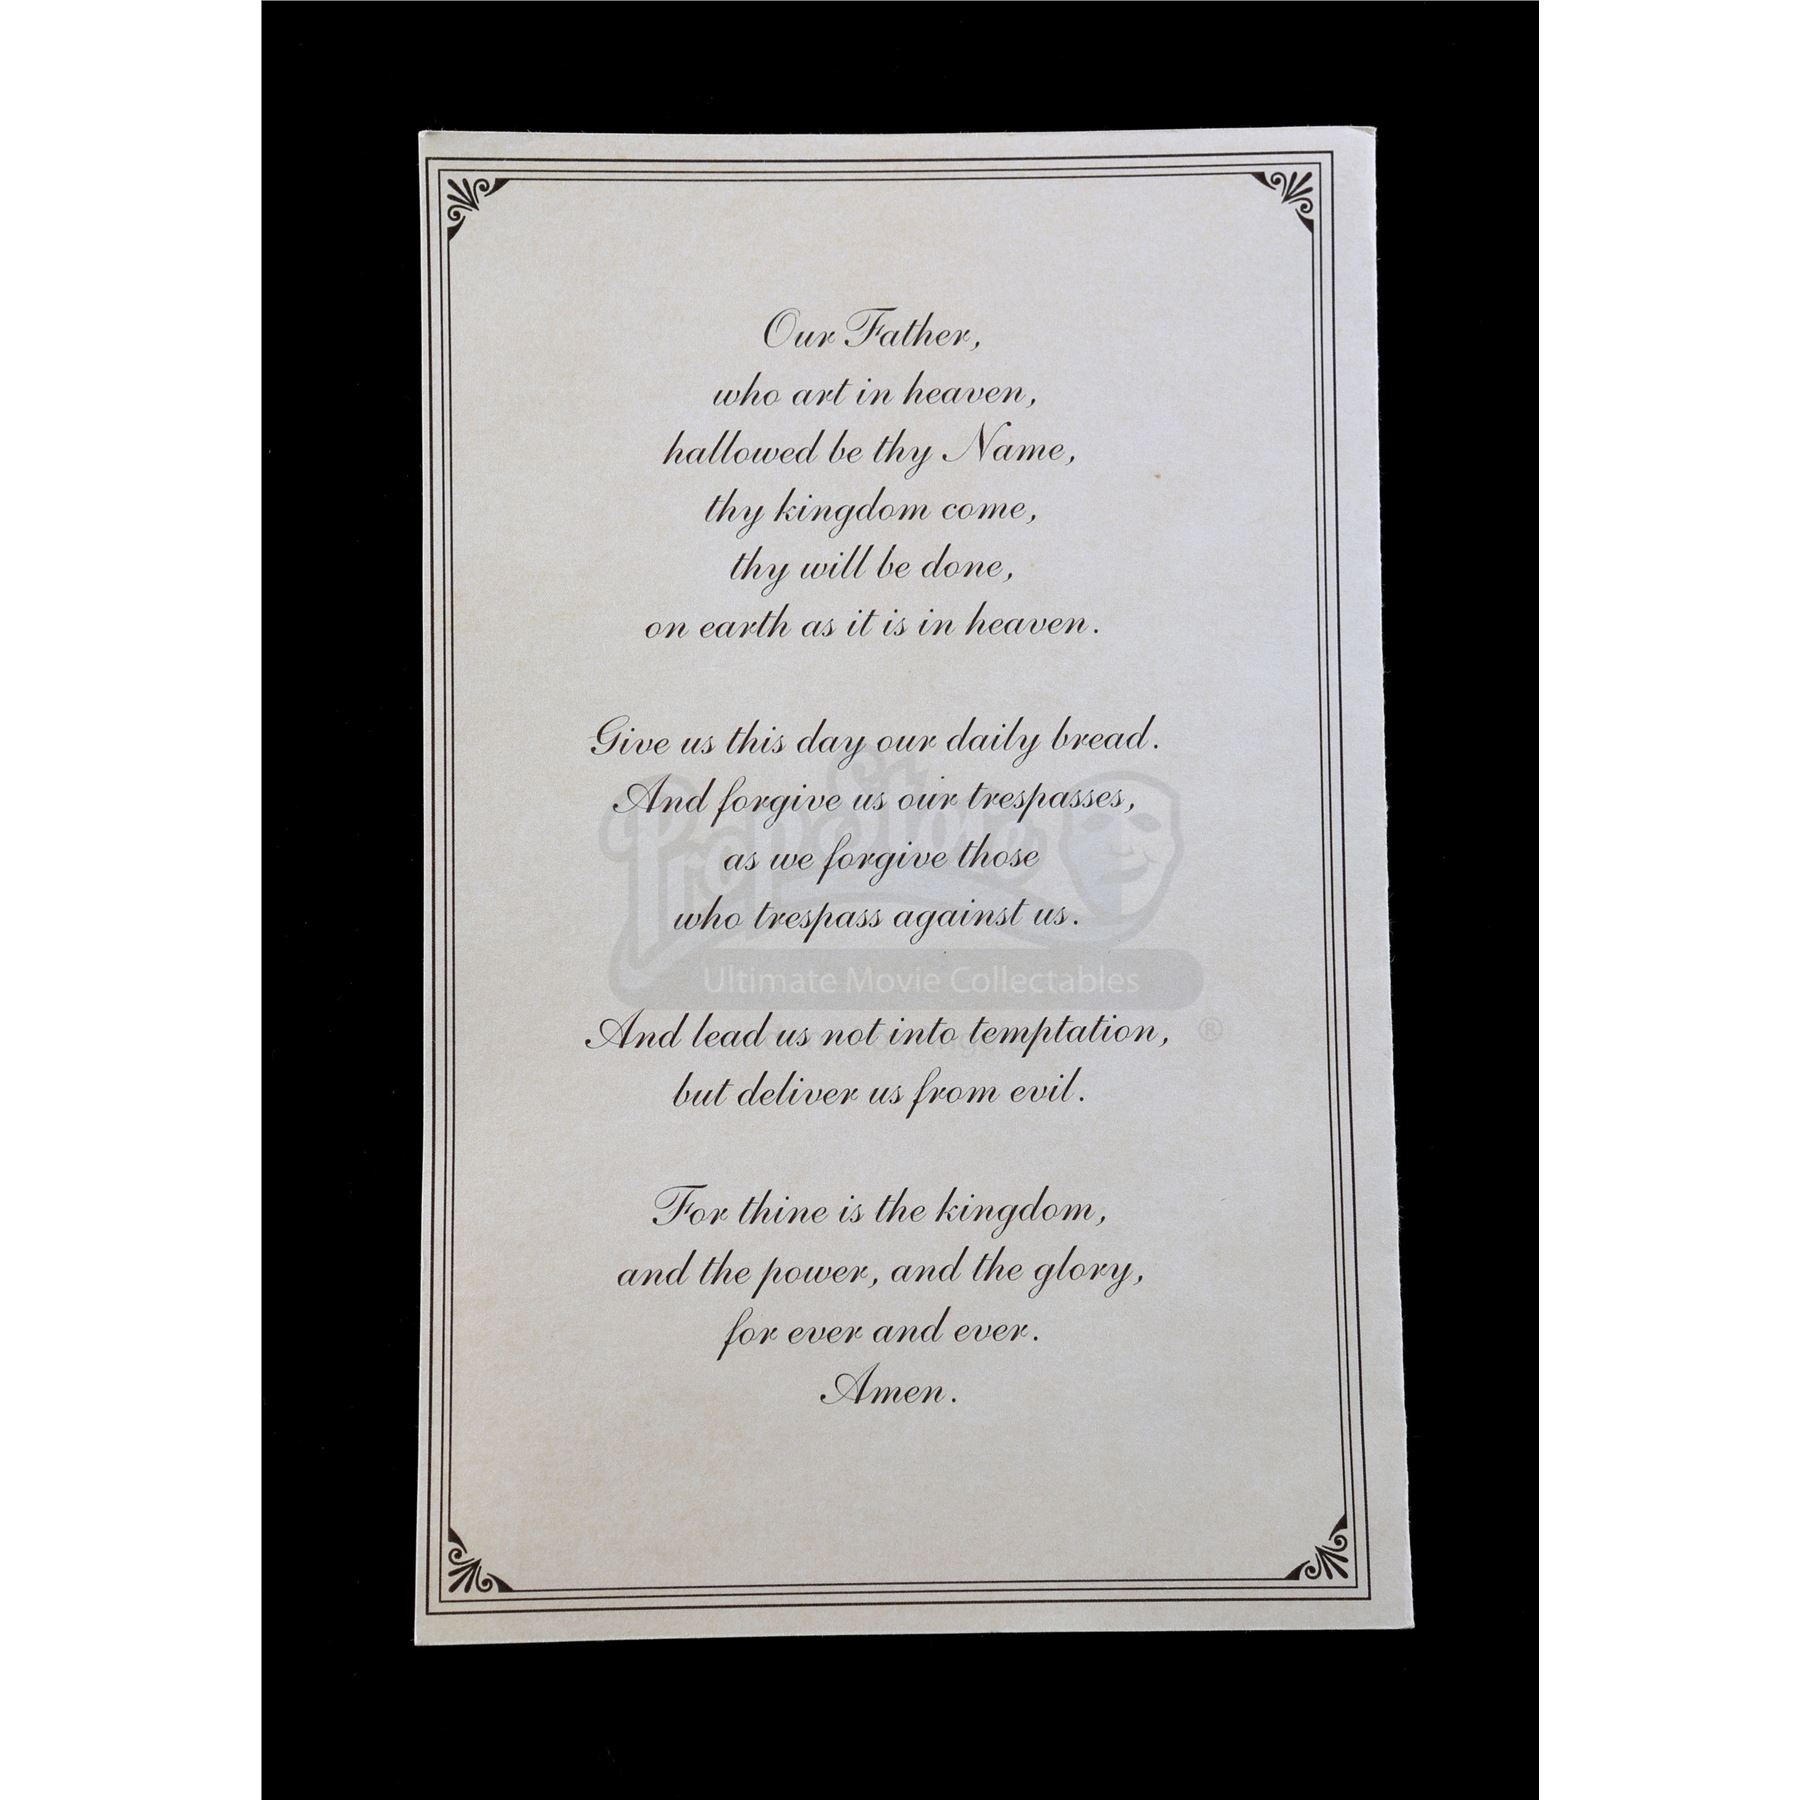 Our Father,
who art in heaven,
hallowed be thy Name,
thy kingdom come,
thy will be done,
on earth as it is in heaven.
Give us this day our daily bread.
And forgive us our trespasses,
as we forgive those
who trespass against us.
And lead us not into temptation,
but deliver us from evil.
For thine is the kingdom,
and the power, and the glory,
for ever and ever.
Amen.
Prop Store
Ultimate Movie Collectables
®